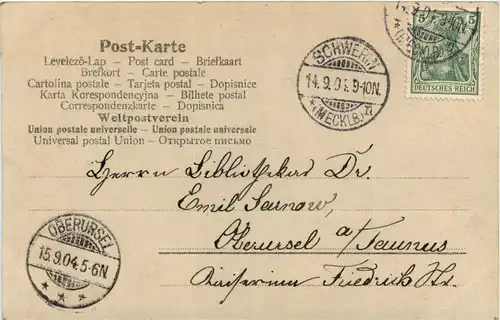 Post-Karte
Levelezõ-Lap — Post card — Briefkaart
Brefkort — Carte postale
Cartolina postale — Tarjeta postal — Dopisnice
Karta Korespondencyjna — Bilhete postal
Correspondenzkarte — Dopisnica
Weltpostverein
Union postale universelle — Union postale universale
Universal postal Union — Открытое письмо
SCHWERIN
14.9.04. 9-10N.
*(MECKLB.)
14.9.04. 9-10N.
*(MECKLB.)
5 5
DEUTSCHES REICH
Herrn Bibliothekar Dr.
Emil Sarnow,
Oberursel a/Taunus
Kaiserin Friedrich Str.
OBERURSEL
15.9.04.5-6N
* * *